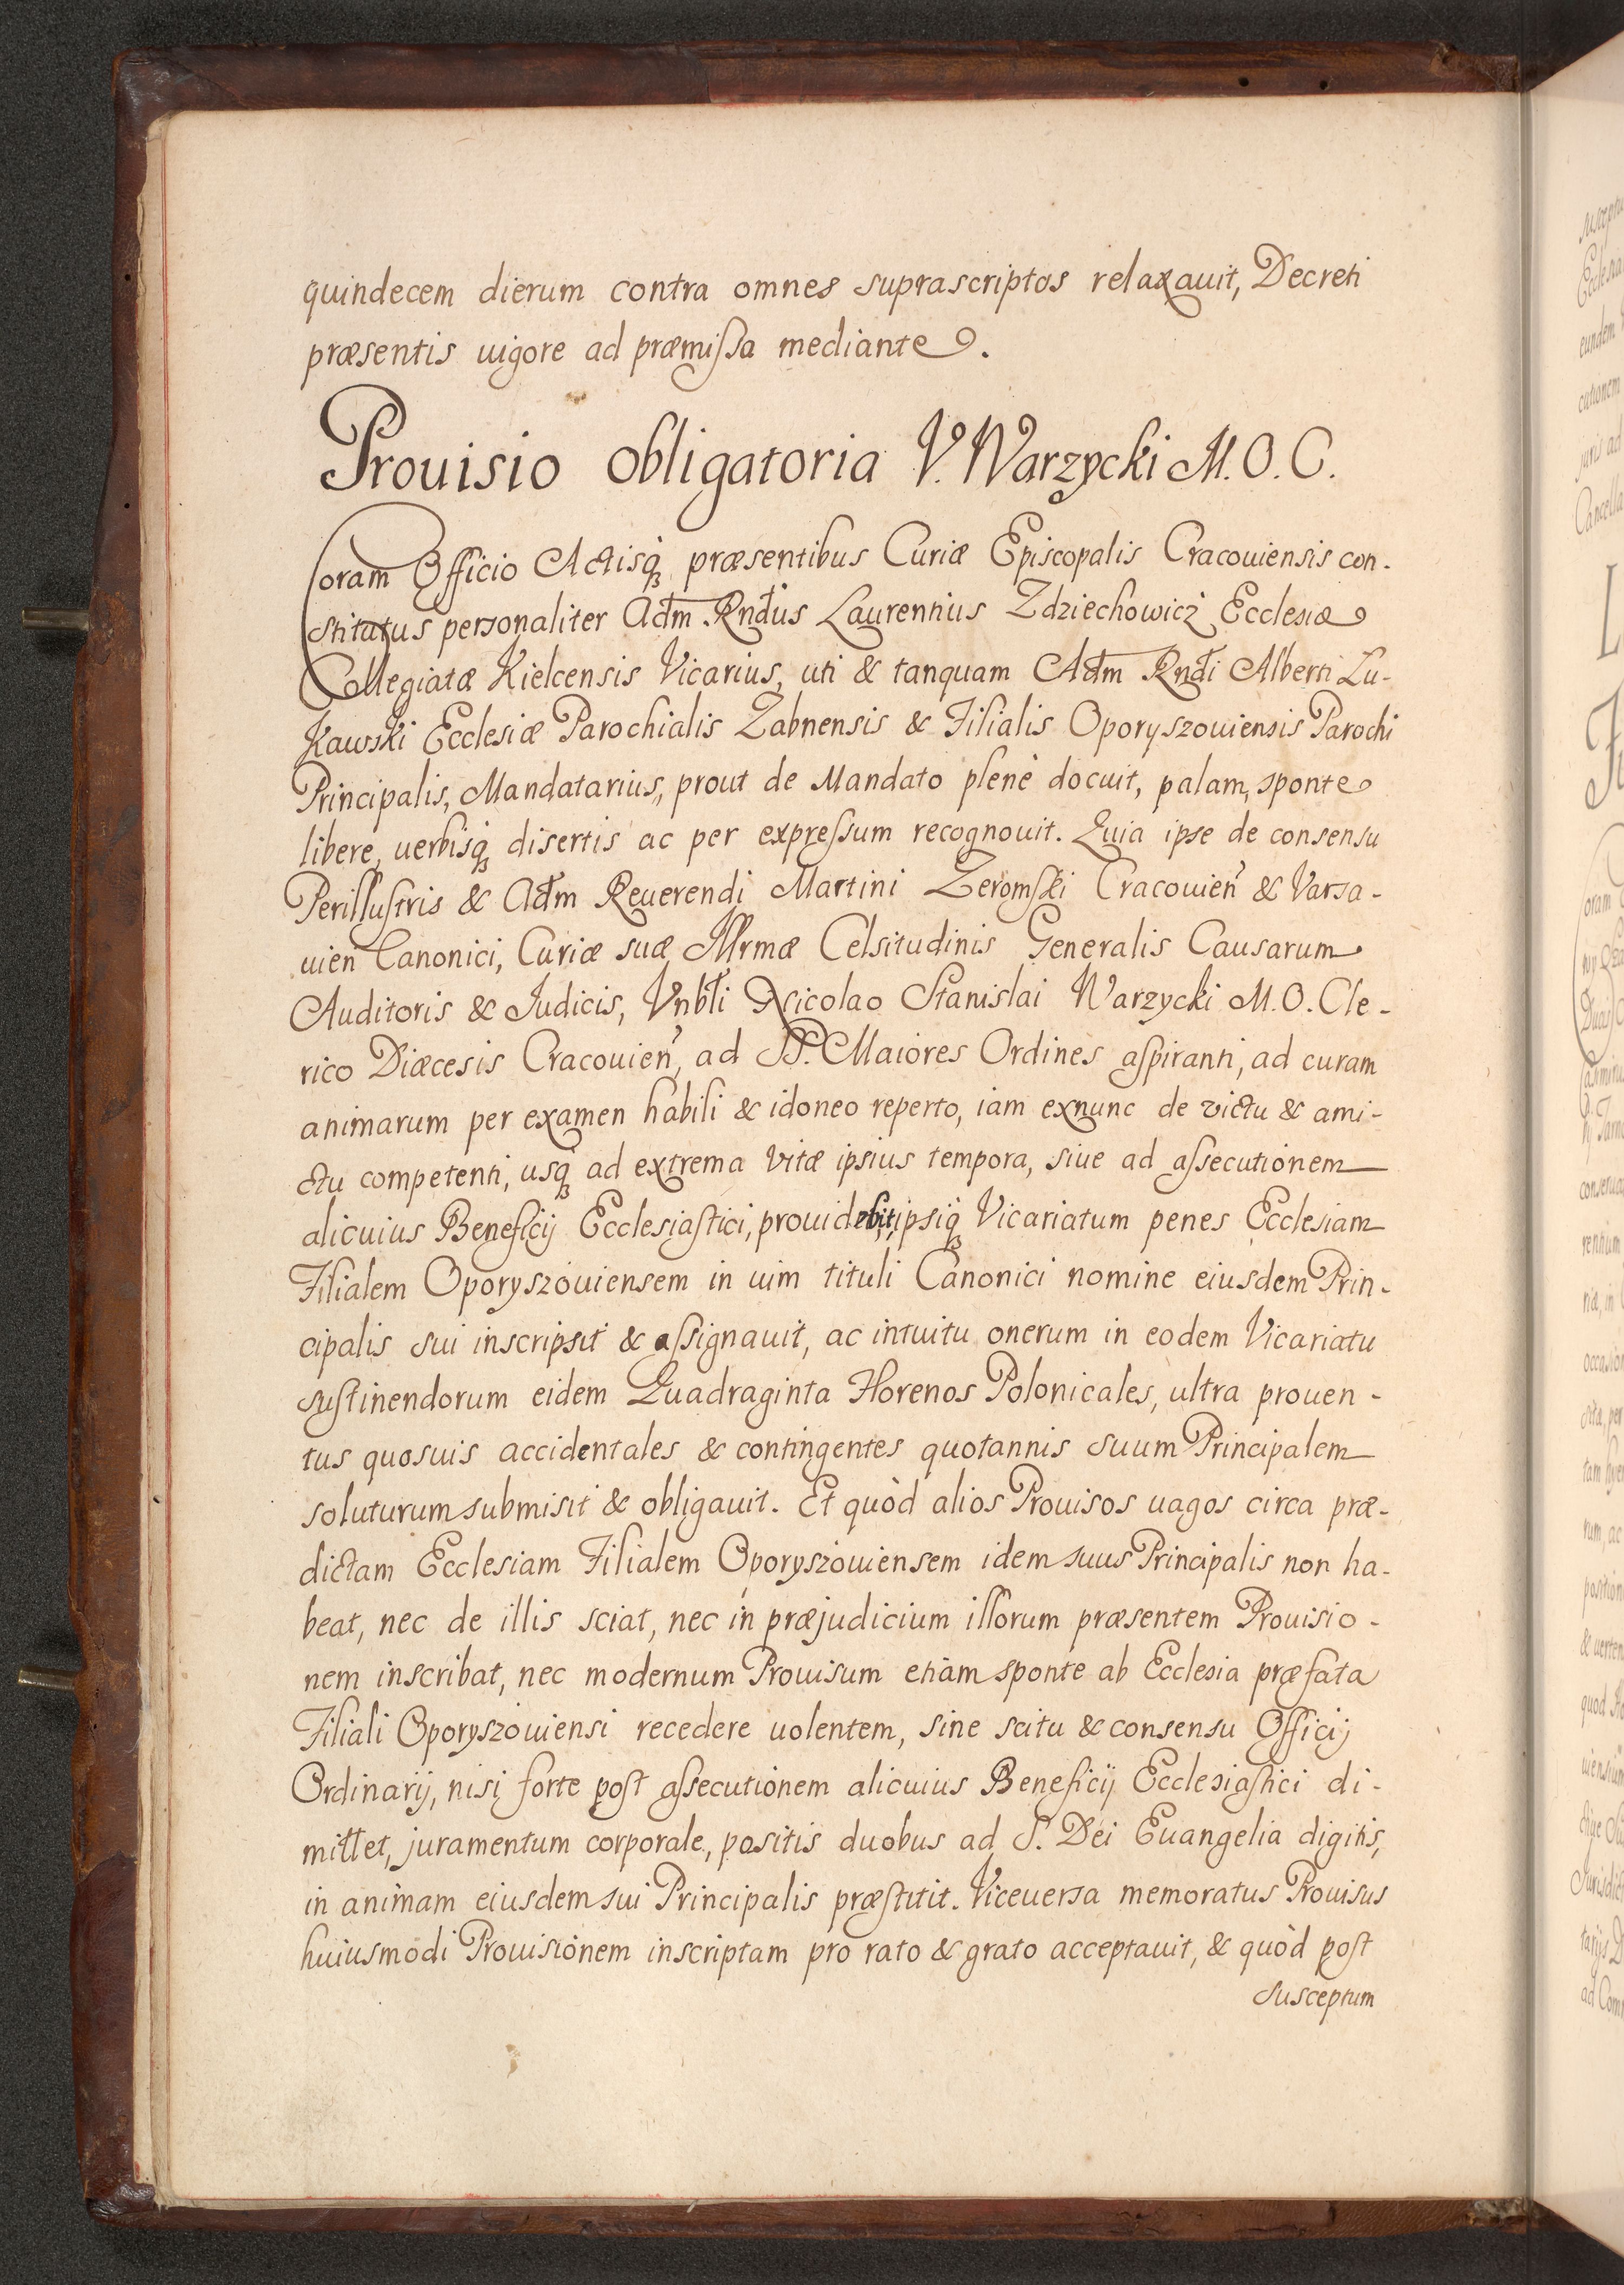 quindecem dierum contra omnes suprascriptos relaxauit, Decreti
præsentis uigore ad præmissa mediante.
Prouisio obligatoria V. Warzycki M. O. C.
Coram Officio Actisq; præsentibus Curiæ Episcopalis Cracouiensis con-
stitutus personaliter Adm Rndus Laurentius Zdziechowicz Ecclesiæ
Collegiatæ Kielcensis Vicarius, uti & tanquam Adm Rndi Alberti Lu-
kawski Ecclesiæ Parochialis Zabnensis & Filialis Oporyszouiensis Parochi
Principalis, Mandatarius, prout de Mandato plenè docuit, palam, sponte
libere, uerbisq; disertis ac per expressum recognouit. Quia ipse de consensu
Perillustris & Adm Reuerendi Martini Zeromski Cracouien & Varsa-
uien Canonici, Curiæ suæ Illrmæ Celsitudinis Generalis Causarum
Auditoris & Judicis, Vnbli Nicolao Stanislai Warzycki M. O. Cle-
rico Diæcesis Cracouien, ad SS. Maiores Ordines aspiranti, ad curam
animarum per examen habili & idoneo reperto, iam exnunc de victu & ami-
ctu competenti, usq; ad extrema vitæ ipsius tempora, siue ad assecutionem
alicuius Beneficij Ecclesiastici, prouidebit, ipsiq; Vicariatum penes Ecclesiam
Filialem Oporyszouiensem in uim tituli Canonici nomine eiusdem Prin-
cipalis sui inscripsit & assignauit, ac intuitu onerum in eodem Vicariatu
sustinendorum eidem Quadraginta Florenos Polonicales, ultra prouen-
tus quosuis accidentales & contingentes quotannis suum Principalem
soluturum submisit & obligauit. Et quòd alios Prouisos uagos circa præ-
dictam Ecclesiam Filialem Oporyszouiensem idem suus Principalis non ha-
beat, nec de illis sciat, nec in præjudicium illorum præsentem Prouisio-
nem inscribat, nec modernum Prouisum etiam sponte ab Ecclesia præfata
Filiali Oporyszouiensi recedere uolentem, sine scitu & consensu Officij
Ordinarij, nisi forte post assecutionem alicuius Beneficij Ecclesiastici di-
mittet, juramentum corporale, positis duobus ad S. Dei Euangelia digitis,
in animam eiusdem sui Principalis præstitit. Viceuersa memoratus Prouisus
huiusmodi Prouisionem inscriptam pro rato & grato acceptauit, & quòd post
susceptum